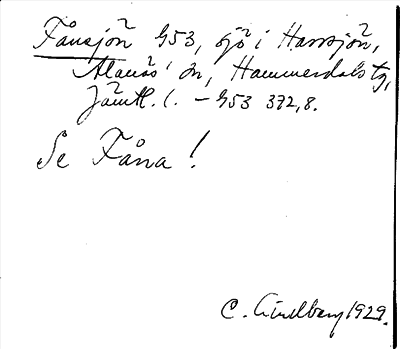 Fånsjön GS3, sjö i Harrsjön,
Alanäs sn, Hammerdals tg,
Jämtl. l. – GS3 372,8.
Se Fåna!
C. Lindberg 1929.